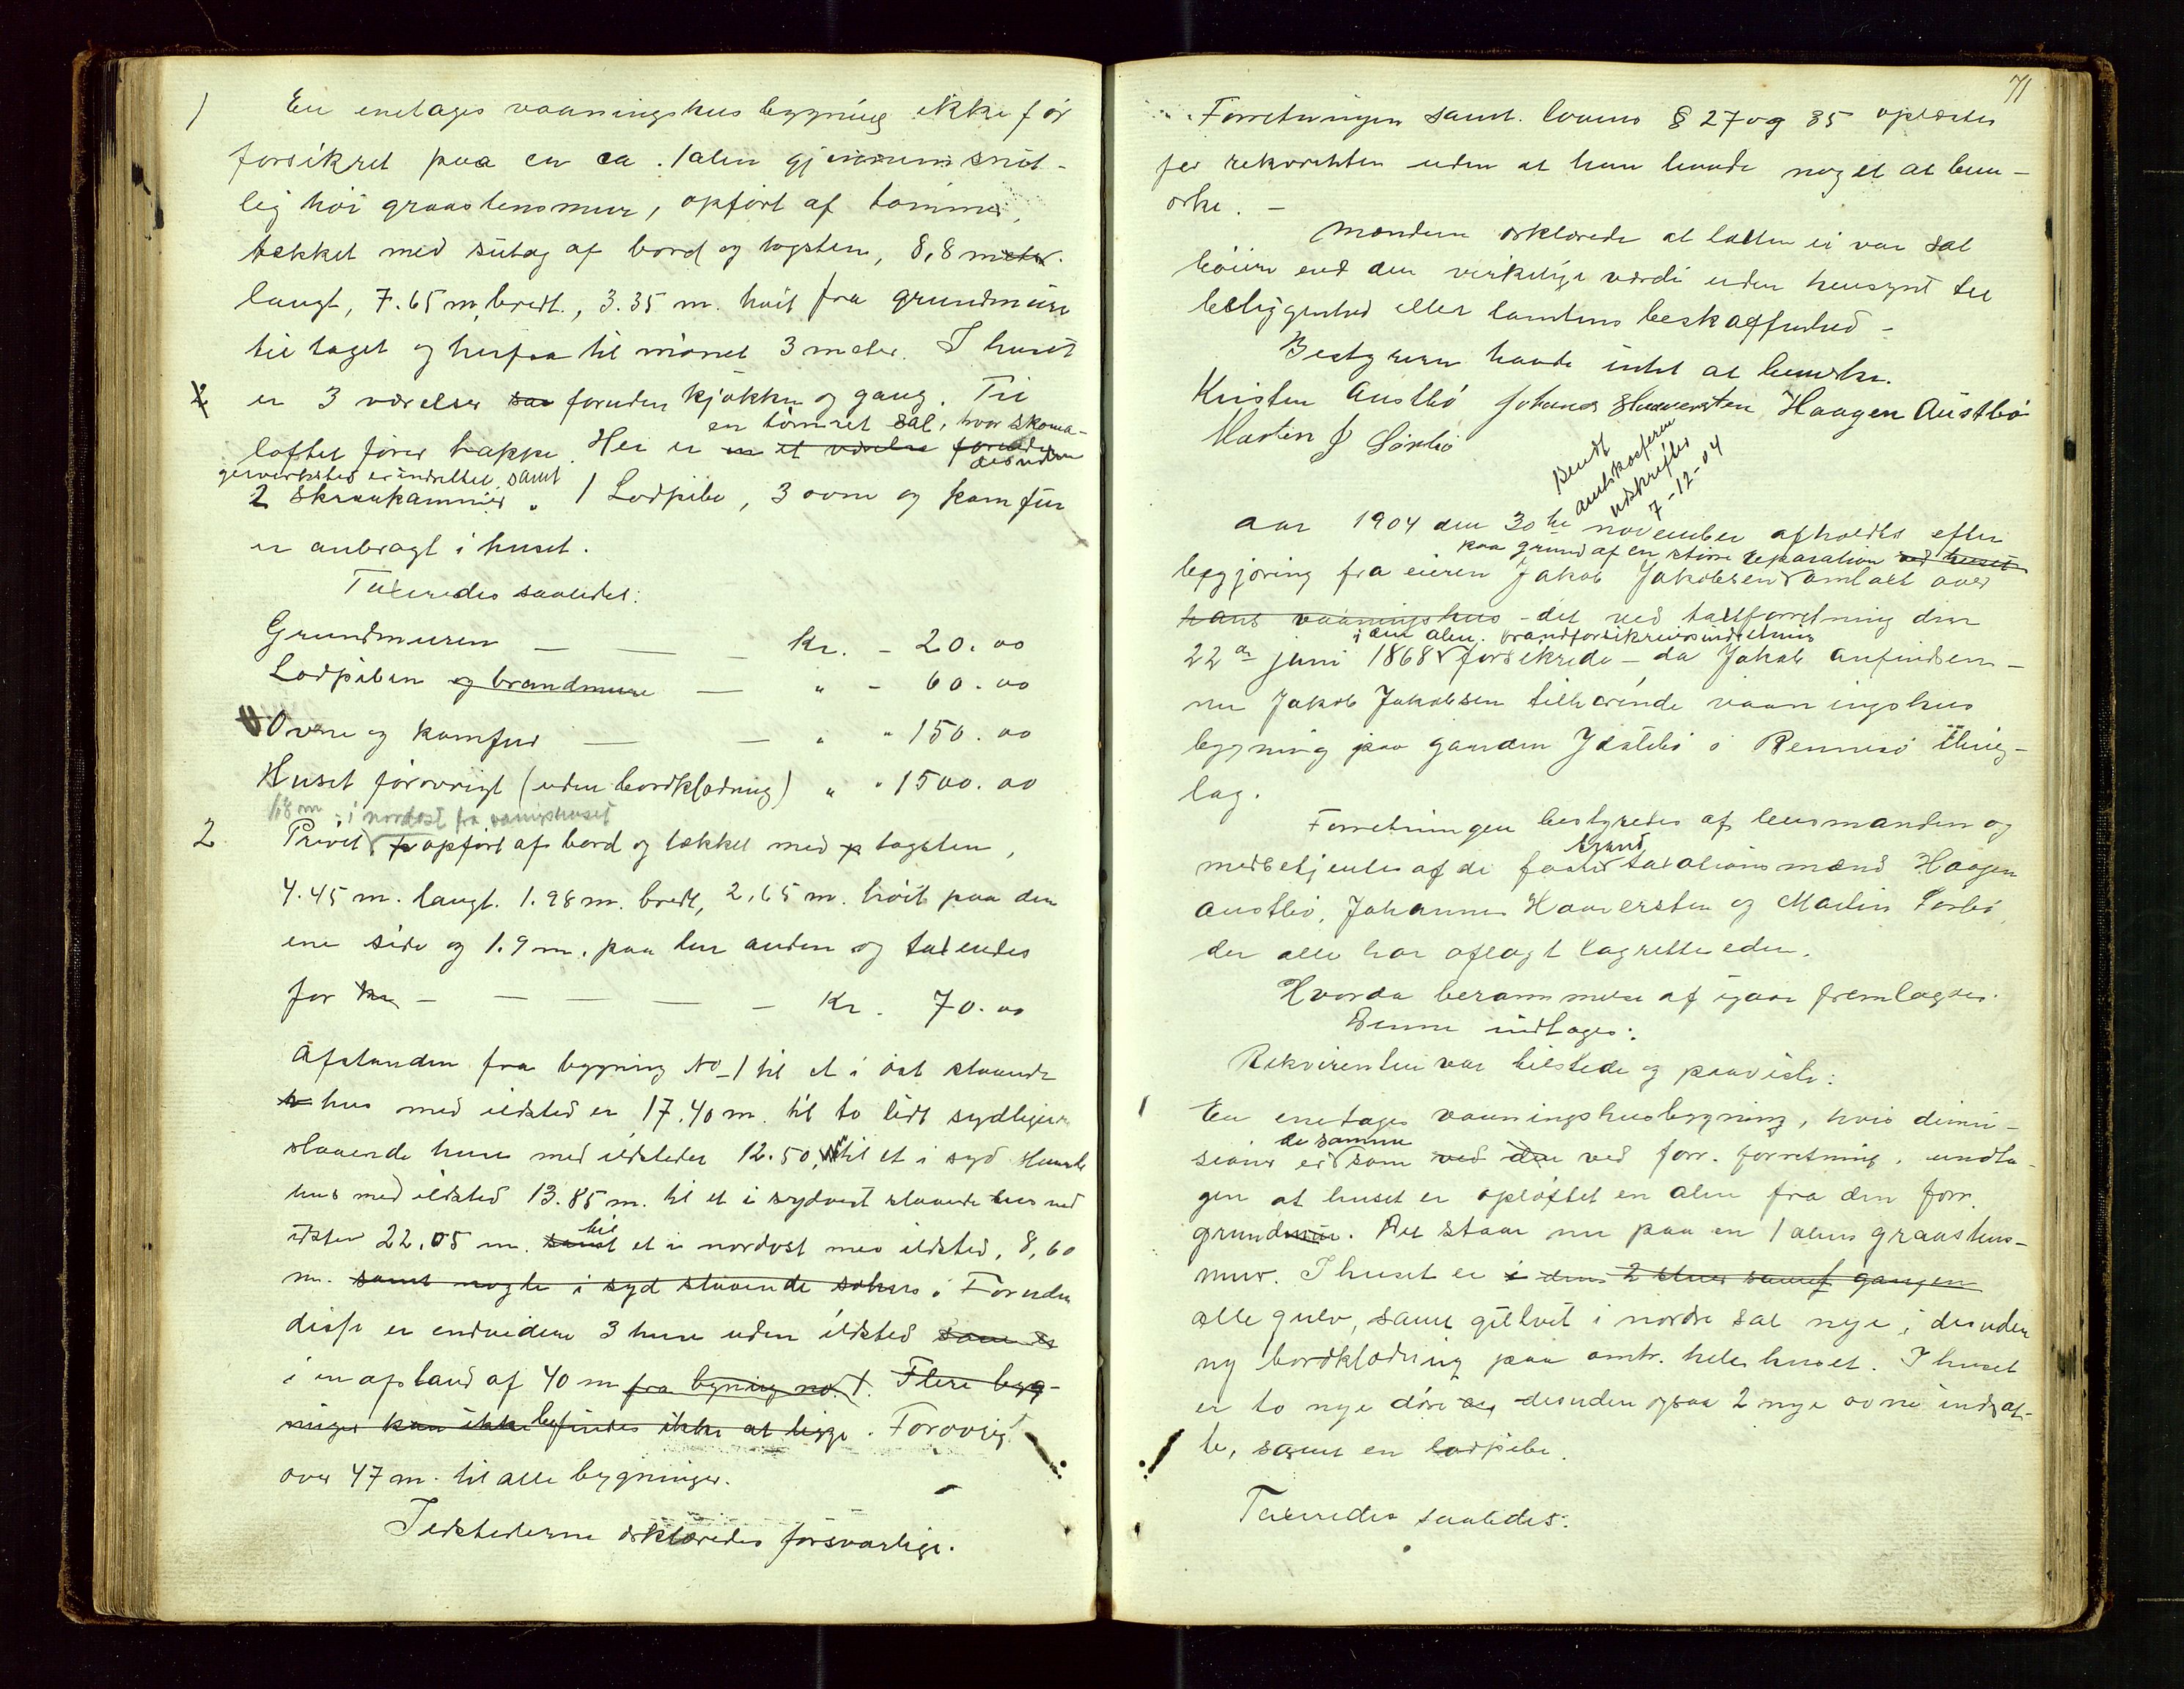 1 En enetages vaaningshusbygning ikke før
forsikret paa en ca. 1 alen gjennemsnit-
lig høi graastensmur, opført af tømmer,
tækket med sutag af bord og tagsten, 8,8 meter
langt, 7.65 m. bredt, 3.35 m. høit fra grundmuren
til taget og herfra til mønet 3 meter. I huset
2 er 3 værelser sa foruden kjøkken og gang. Til
en tømret sal, hvor skoma-
loftet fører trappe. Her er en et værelse foruden
desuden
gerverksted er indrettet, samt
2 skraakammer. 1 Lodpibe, 3 ovne og komfur
er anbragt i huset.
Taxeredes saaledes:
Grundmuren — — — Kr. - 20.00
Lodpiben og brandmure — " - 60.00
Ovne og komfur — — " " 150.00
Huset forøvrigt (uden bordklædning) " " 1500.00
168 m i nordost fra vaaningshuset
2 Privet p opført af bord og tækket med p tagsten,
4.45 m. langt. 1.98 m. bredt, 2,65 m. høit paa den
ene side og 1.9 m. paa den anden og taxeredes
for kr — — — — — Kr. 70.00
Afstanden fra bygning No 1 til et i øst staaende
h hus med ildsted er 17.40 m. til to lidt sydligere
staaende huse med ildsteder 12.50, m til et i syd
hus med ildsted 13.85 m. til et i sydvest staaende hus med
ildsted 22.05 m. samt til et i nordost med ildsted, 8,60
m. samt nogle i syd staaende søhus. Foruden
disse er endvidere 3 huse uden ildsted som er
i en afstand af 40 m fra bygning no. 1. Flere byg-
ninger kan ikke befindes ikke at ligge. Forøvrigt
over 47 m. til alle bygninger.
Ildstederne erklæredes forsvarlige.
71
Forretningen samt lovens § 27 og 35 oplæstes
for rekvirenten uden at han havde noget at bem-
ærke. —
Mændene erklærede at taxten ei var sat
høiere end den virkelige værdi uden hensynt til
beliggenhed eller tomtens beskaffenhed -
Bestyreren havde intet at bemerke.
Kristen Austbø Johannes Haaversten Haagen Austbø
Martin J Sørbø
Sendt
amtskasseren
udskrifter
7-12-04
Aar 1904 den 30te november afholdtes efter
paa grund af en større reparation ved huset
begjæring fra eieren Jakob Jakobsen omtaxt over
hans vaaningshus - det ved taxtforretning den
i den alm. brandforsikrings indretning
22de juni 1868 forsikrede - da Jakob Anfindsen -
nu Jakob Jakobsen tilhørende vaaningshus
bygning paa gaarden Ydstebø i Rennesø thing-
lag.
Forretningen bestyredes af lensmanden og
brand
medbetjentes af de faste taxationsmænd Haagen
Austbø, Johannes Haaversten og Martin Sørbø,
der alle har aflagt lagretteeden.
Hvorda berammelse af igaar fremlagdes.
Denne indtages:
Rekvirenten var tilstede og paaviste:
1 En enetages vaaningshusbygning, hvis dimen-
de samme
sioner er som ved den ved forr. forretning, undta-
gen at huset er opløftet en alen fra den forr.
grundmur. Det staar nu paa en 1 alens graastens-
mur. I huset er i den 2 stuer samt gangen
alle gulv, samt giltvet i nordre sal nye, desuden
ny bordklædning paa omtr. hele huset. I huset
er to nye døre og desuden ogsaa 2 nye ovne indsat-
te, samt en lodpibe.
Taxeredes saaledes: